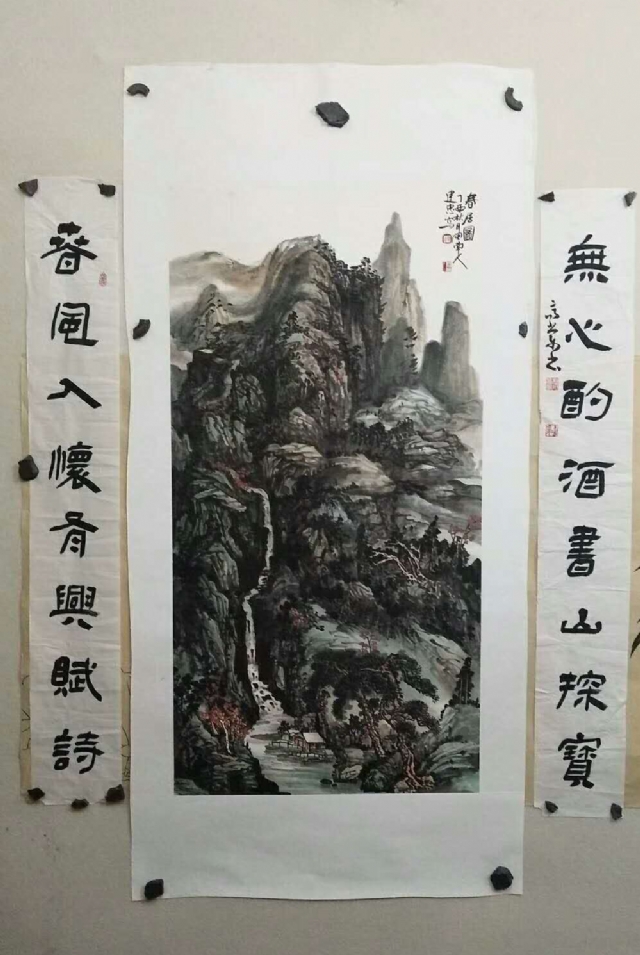 無心酌酒書山探寶
春居圖
丁酉秋月
春風入懷有興賦詩